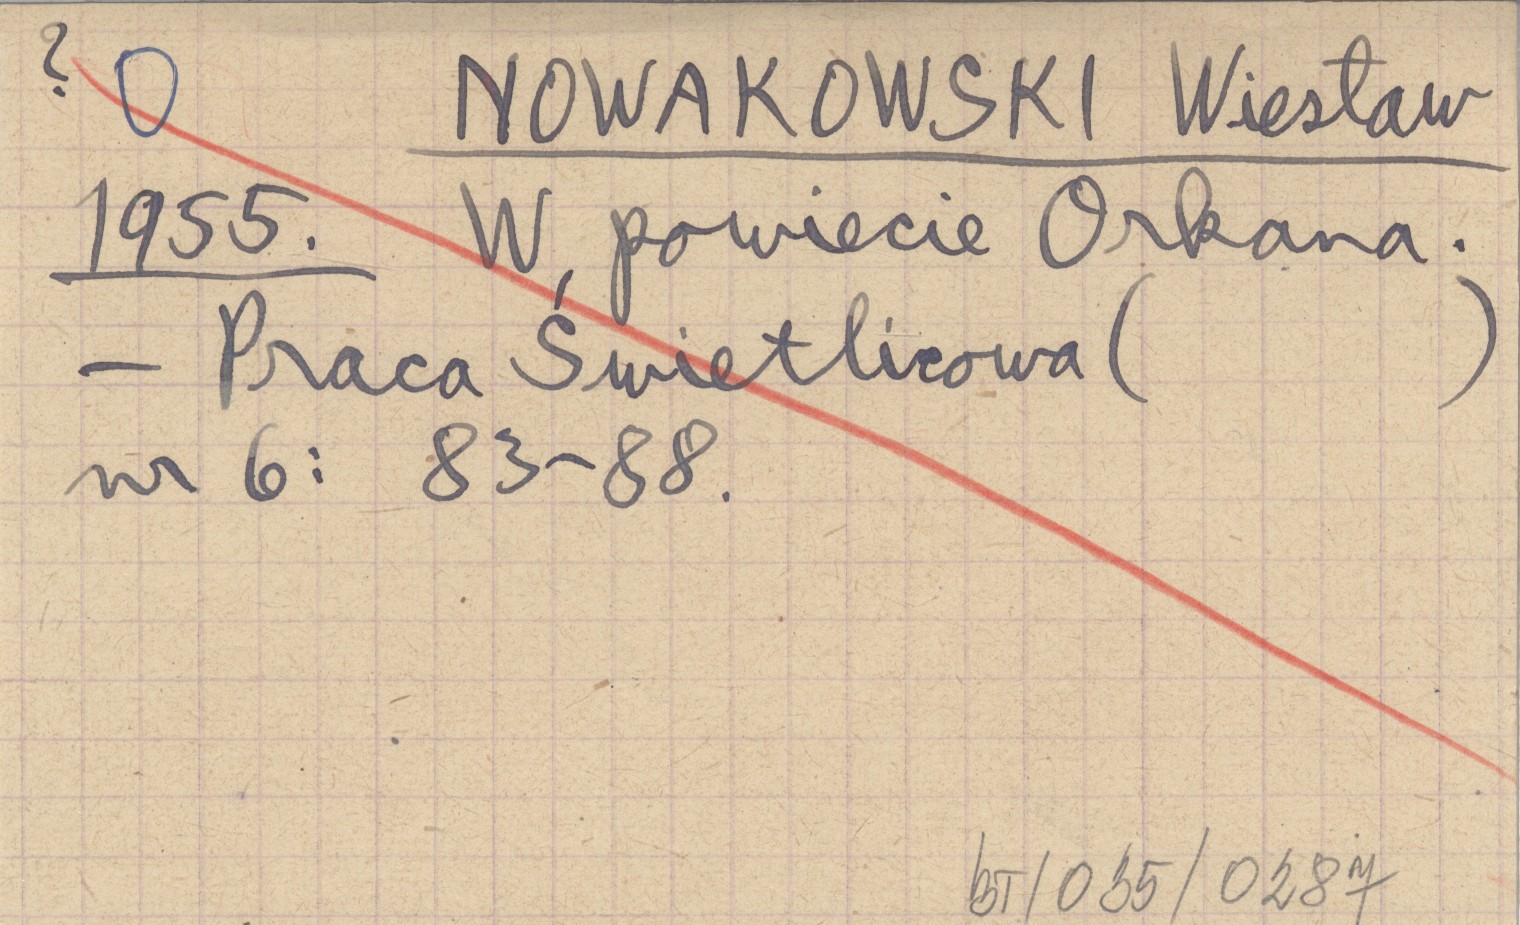 ? O NOWAKOWSKI Wiesław
1955. W powiecie Orkana.
– Praca Świetlicowa ( )
nr 6: 83-88.
BT/035/0287